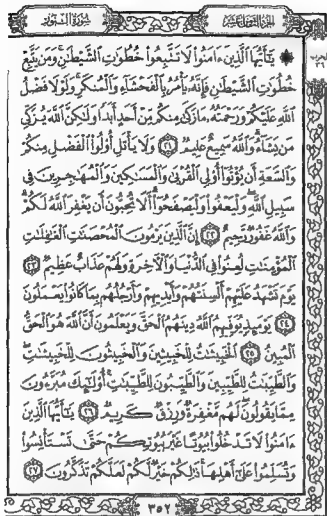 سورة النور
الجزء الثامن عشر
۞ يَٰٓأَيُّهَا ٱلَّذِينَ ءَامَنُوا۟ لَا تَتَّبِعُوا۟ خُطُوَٰتِ ٱلشَّيْطَٰنِ ۚ وَمَن يَتَّبِعْ
خُطُوَٰتِ ٱلشَّيْطَٰنِ فَإِنَّهُۥ يَأْمُرُ بِٱلْفَحْشَآءِ وَٱلْمُنكَرِ ۚ وَلَوْلَا فَضْلُ
ٱللَّهِ عَلَيْكُمْ وَرَحْمَتُهُۥ مَا زَكَىٰ مِنكُم مِّنْ أَحَدٍ أَبَدًا وَلَٰكِنَّ ٱللَّهَ يُزَكِّى
مَن يَشَآءُ ۗ وَٱللَّهُ سَمِيعٌ عَلِيمٌ ٢١ وَلَا يَأْتَلِ أُو۟لُوا۟ ٱلْفَضْلِ مِنكُمْ
وَٱلسَّعَةِ أَن يُؤْتُوٓا۟ أُو۟لِى ٱلْقُرْبَىٰ وَٱلْمَسَٰكِينَ وَٱلْمُهَٰجِرِينَ فِى
سَبِيلِ ٱللَّهِ ۖ وَلْيَعْفُوا۟ وَلْيَصْفَحُوٓا۟ ۗ أَلَا تُحِبُّونَ أَن يَغْفِرَ ٱللَّهُ لَكُمْ ۗ
وَٱللَّهُ غَفُورٌ رَّحِيمٌ ٢٢ إِنَّ ٱلَّذِينَ يَرْمُونَ ٱلْمُحْصَنَٰتِ ٱلْغَٰفِلَٰتِ
ٱلْمُؤْمِنَٰتِ لُعِنُوا۟ فِى ٱلدُّنْيَا وَٱلْءَاخِرَةِ وَلَهُمْ عَذَابٌ عَظِيمٌ ٢٣
يَوْمَ تَشْهَدُ عَلَيْهِمْ أَلْسِنَتُهُمْ وَأَيْدِيهِمْ وَأَرْجُلُهُم بِمَا كَانُوا۟ يَعْمَلُونَ
٢٤ يَوْمَئِذٍ يُوَفِّيهِمُ ٱللَّهُ دِينَهُمُ ٱلْحَقَّ وَيَعْلَمُونَ أَنَّ ٱللَّهَ هُوَ ٱلْحَقُّ
ٱلْمُبِينُ ٢٥ ٱلْخَبِيثَٰتُ لِلْخَبِيثِينَ وَٱلْخَبِيثُونَ لِلْخَبِيثَٰتِ ۖ
وَٱلطَّيِّبَٰتُ لِلطَّيِّبِينَ وَٱلطَّيِّبُونَ لِلطَّيِّبَٰتِ ۚ أُو۟لَٰٓئِكَ مُبَرَّءُونَ
مِمَّا يَقُولُونَ ۖ لَهُم مَّغْفِرَةٌ وَرِزْقٌ كَرِيمٌ ٢٦ يَٰٓأَيُّهَا ٱلَّذِينَ
ءَامَنُوا۟ لَا تَدْخُلُوا۟ بُيُوتًا غَيْرَ بُيُوتِكُمْ حَتَّىٰ تَسْتَأْنِسُوا۟
وَتُسَلِّمُوا۟ عَلَىٰٓ أَهْلِهَا ۚ ذَٰلِكُمْ خَيْرٌ لَّكُمْ لَعَلَّكُمْ تَذَكَّرُونَ ٢٧
٣٥٢